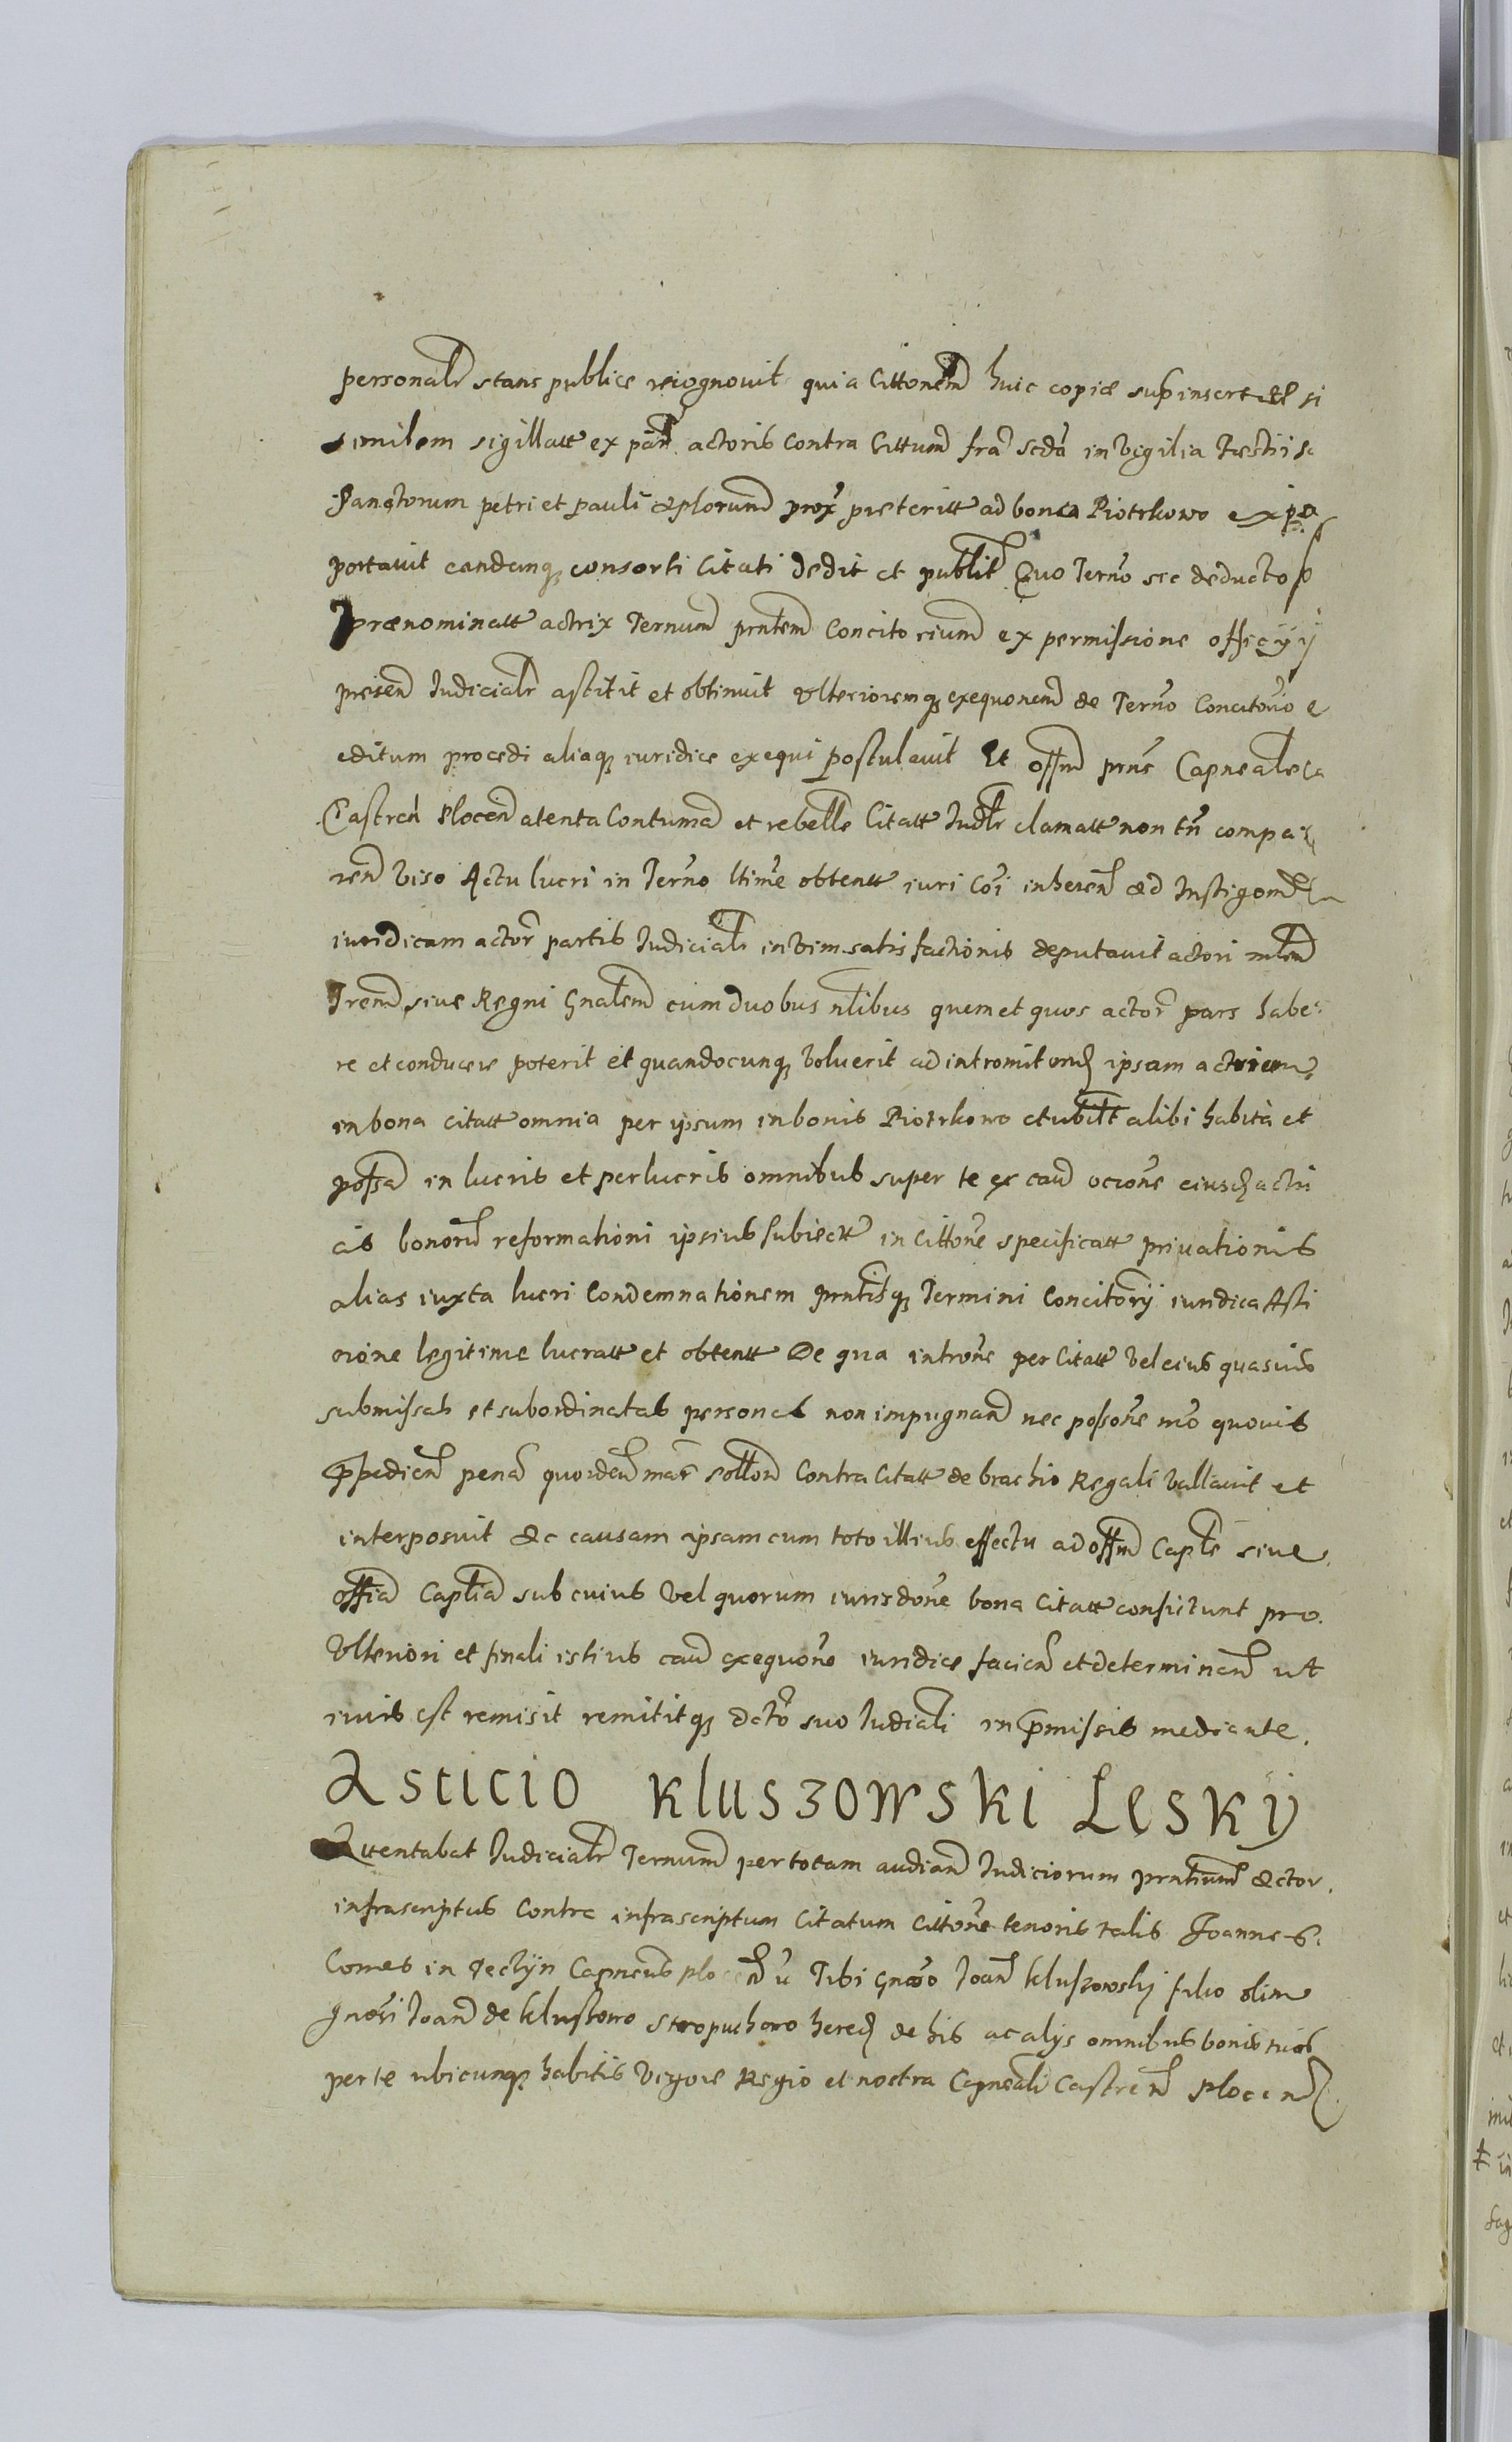 personalr stans publice recognouit quia Cittonem huic copiæ sup insertæ si
similem sigillatt ex parte actoris Contra Cittum fra scda in Vigilia Festi
Sanctorum petri et pauli aplorum prox preteritt ad bona Piotrkowo
portauit eandemq consorti Citati dedit et publit Quo Terno sic deducto
prænominatt actrix Ternum prntem Concitorium ex permissione officy
presen Iudicialr astitit et obtinuit Vlterioremq exequonem de Terno Concitorio
editum procedi aliaq iuridice exequi postulauit Et offm prns Capneale
Castren Plocen atenta Contuma et rebelle Citatt Iudlr clamatt non tn compa
ren Viso Actu lucri in Terno ltime obtentt iuri coi inheren ad Instigonem
iuridicam actor partis Iudicialr in Vim satisfactionis deputauit actori mlem
Trem siue Regni Gnalem cum duobus nlibus quem et quos actor pars habe
re et conducere poterit et quandocunq Voluerit ad intromitend ipsam actricem
in bona citatt omnia per ipsum in bonis Piotrkowo et ubilt alibi habita et
possa in lucris et perlucris omnibus super te ex cau ocione eiusd actri
cis bonoru reformationi ipsius subiectt in Cittone specificatt priuationis
alias iuxta lucri Condemnationem prntisq Termini Concitory iuridica Asti
cione legitime lucratt et obtentt De qua introne per Citatt Vel eius quasuis
submissas et subordinatas personas non impugnand nec possone mo quouis
Ppedien pena quorden mar sollon Contra Citatt de brachio Regali Vallauit et
interposuit Ac causam ipsam cum toto illius effectu ad offm Caple siue
offia Caplia sub cuius Vel quorum iurisdone bona Citatt consistunt pro
Vlteriori et finali istius cau exequone iuridice facien et determinen ut
iuris est remisit remititq dcto suo Iudiali in pmissis mediante
Asticio Kluszowski Lesky
Attentabat Iudicialr Ternum per totam audian Iudiciorum prntium Actor
infrascriptus Contra infrascriptum Citatum Cittone tenoris talis Joannes
Comes in Tectyn Capneus plocen Tibi Gnoso Joan Kluszowsky filio olim
Gnosi Joan de Kluszowo Stropuchowo hered de his ac alys omnibus bonis tuis
per te ubicunq habitis Vigore Regio et nostra Capneali Castren Plocen